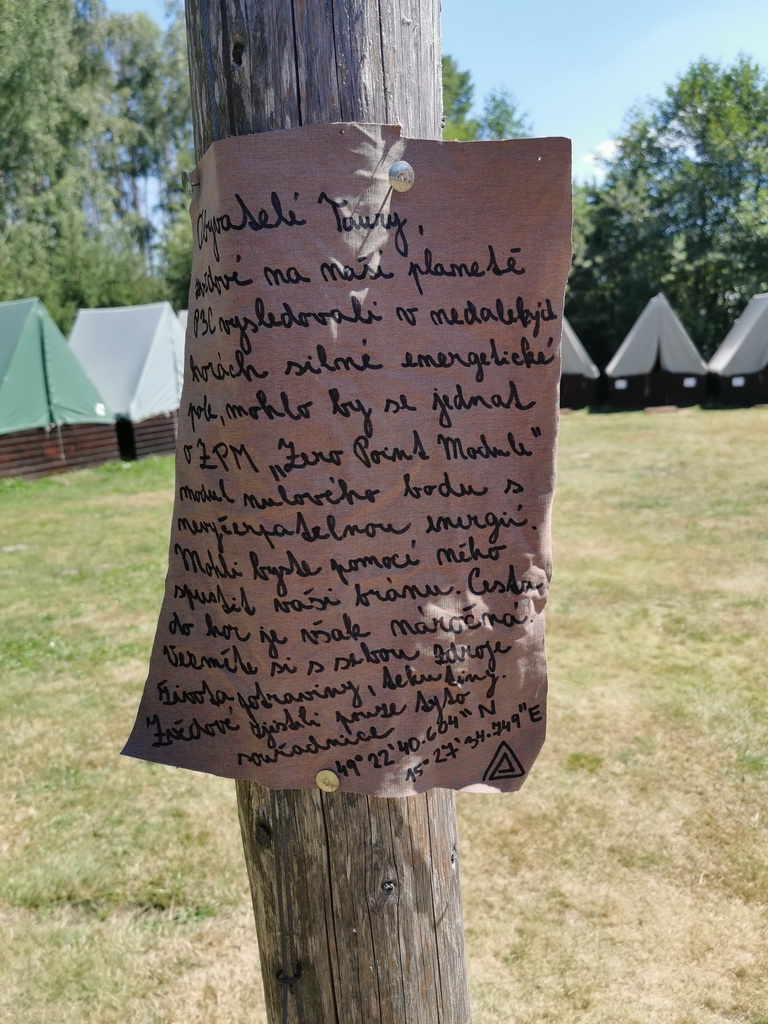 Obyvatelé Taury,
zvědové na naší planetě
P3C vysledovali v nedalekých
horách silné energetické
pole, mohlo by se jednat
o ZPM „Zero Point Module"
modul nulového bodu s
nevyčerpatelnou energií.
Mohli byste pomocí něho
spustit vaši bránu. Cesta
do hor je však náročná.
Vezměte si s sebou zdroje
života potraviny, tekutiny.
Zvědové zjistili pouze tyto
souřadnice 49° 22' 40.604" N
15° 27' 34.749" E